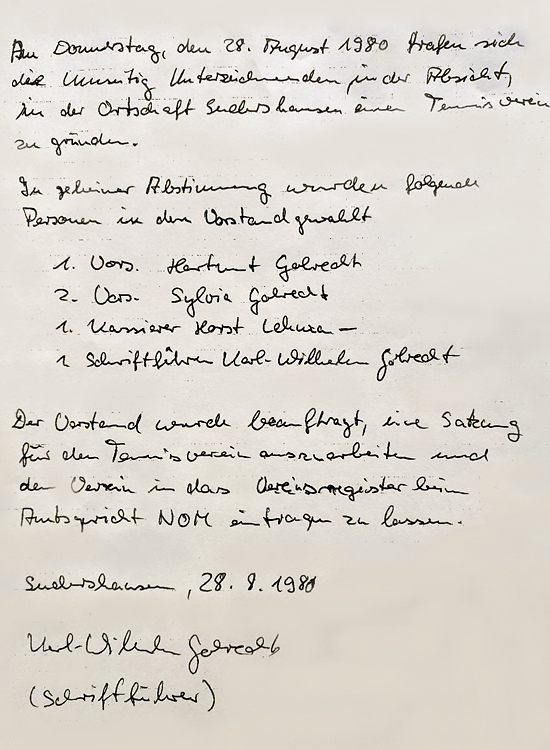 Am Donnerstag, den 28. August 1980 trafen sich
die umseitig Unterzeichnenden, in der Absicht,
in der Ortschaft Sudershausen einen Tennisverein
zu gründen.
In geheimer Abstimmung wurden folgende
Personen in den Vorstand gewählt
1. Vors. Hartmut Golrecht
2. Vors. Sylvia Golrecht
1. Kassierer Horst
1 Schriftführer Karl-Wilhelm Golrecht
Der Vorstand wurde beauftragt, eine Satzung
für den Tennisverein auszuarbeiten und
den Verein in das Vereinsregister beim
Amtsgericht NOM eintragen zu lassen.
Sudershausen, 28. 8. 1980
Karl-Wilhelm Golrecht
(Schriftführer)